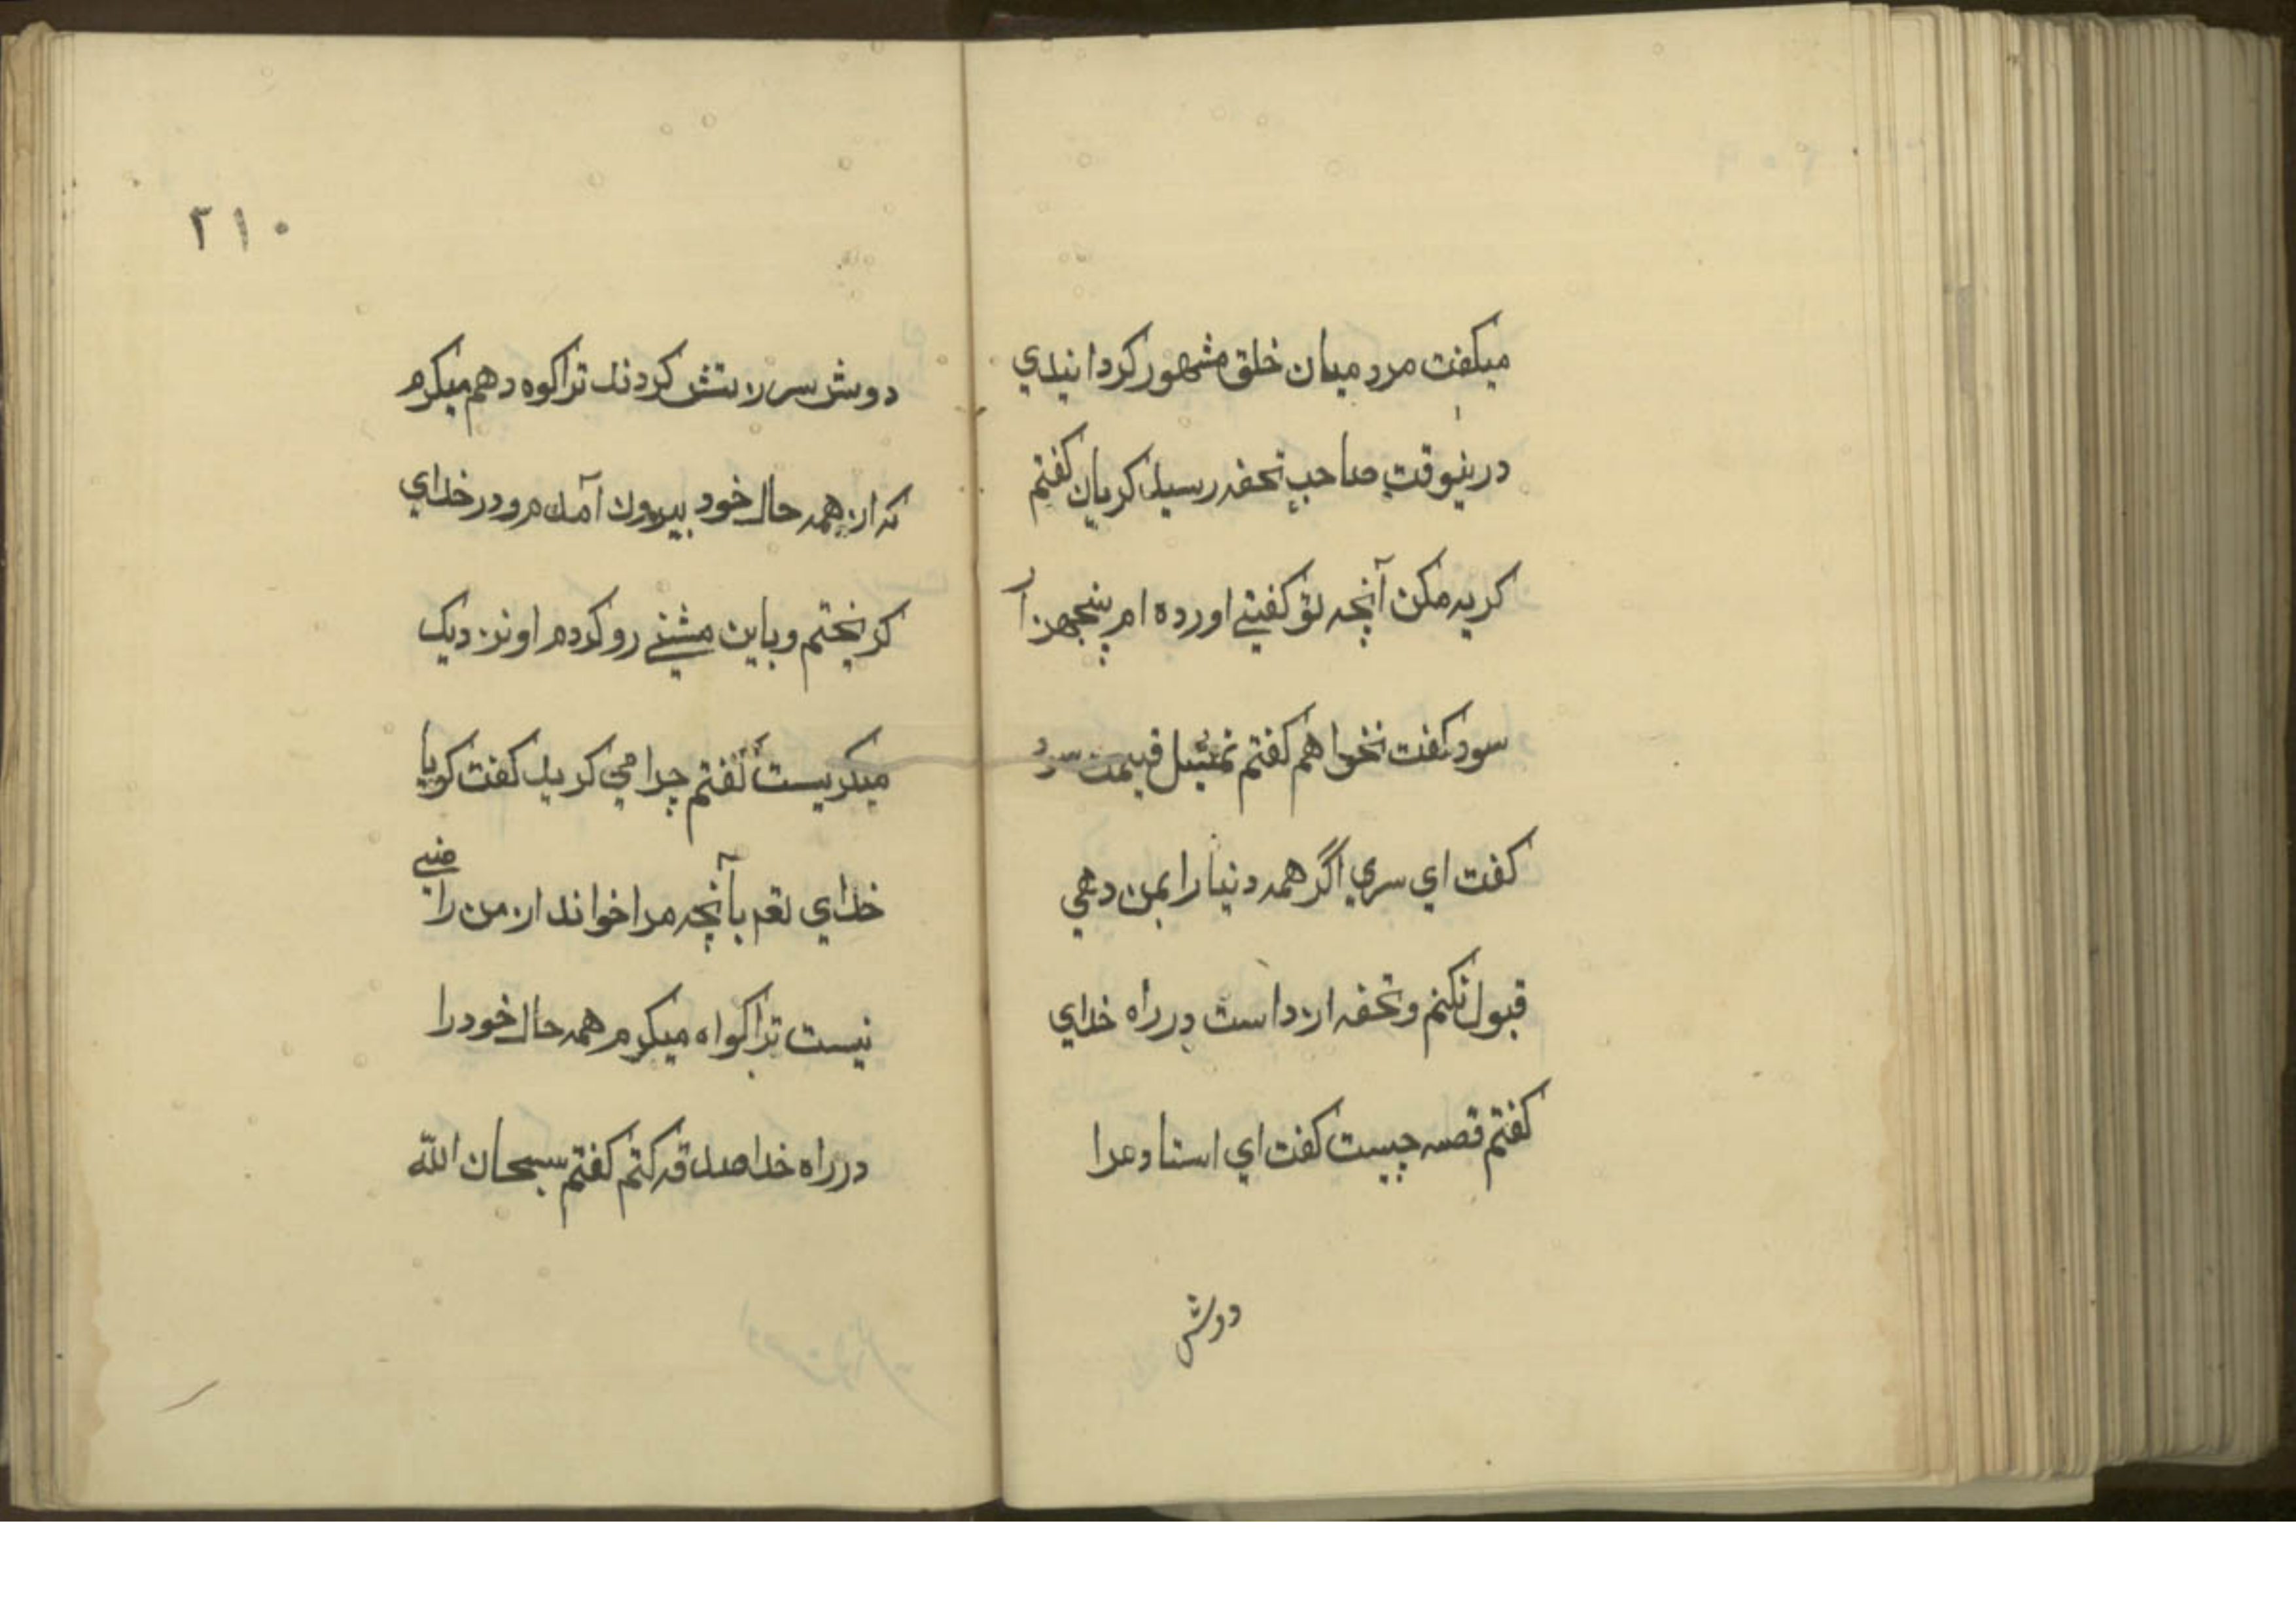 میکفت مرد میان خلق مشهور کردانیدي
درینوقت صاحب تحفه رسید کریان کفتم
کریه مکن آنچه تو کفتے اورده ام پنجهزآر
سود کفت نخواهم کفتم نمثیل قیمت سود
کفت اي سري اگر همه دنیا را بمن دهي
قبول نکنم و تحفه ازداست در راه خداي
کفتم قصه چیست کفت اي استاد مرا
دوش
۲۱۰
دوش سرزنش کردند ترا کوه دهم میکرم
که از همه حال خود بیرون آمدم و در خداي
کریختم و باین مشنے رو کردم او نزدیک
میکریست کفتم چرا مي کرید کفت کویا
خداي تعم بآنچه مرا خواند از من راضے
نیست ترا کواه میکرم همه حال خود را
در راه خدا صدقه کنم کفتم سبحان الله